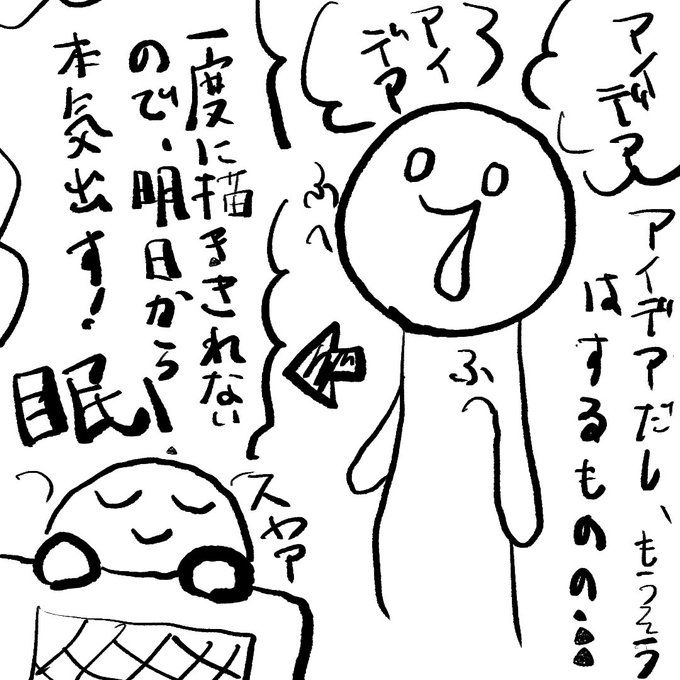 アイデア
アイ
デア
アイデアだし、もうそう
はするものの…
ふへ
ふへ
一度に描ききれない
ので、明日から
本気出す!
眠!
スヤァ